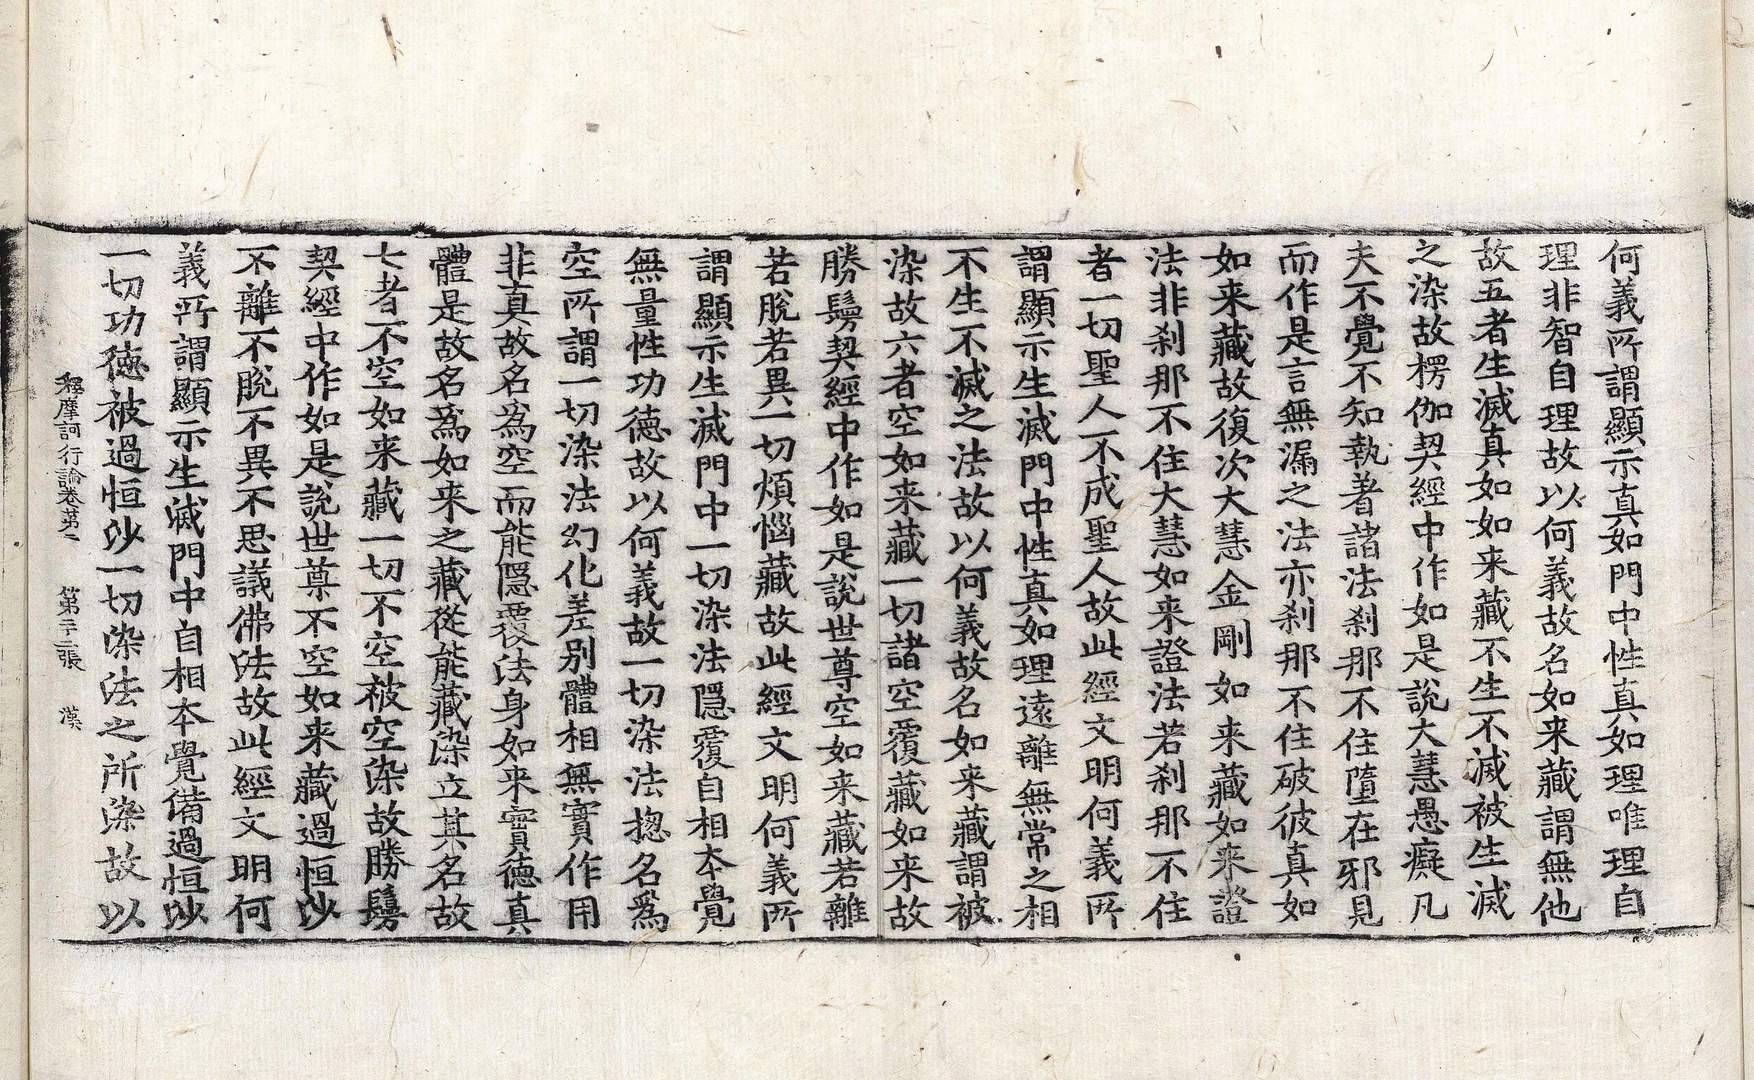 何義所謂顯示真如門中性真如理唯理自
理非智自理故以何義故名如来藏謂無他
故五者生滅真如如来藏不生不滅被生滅
之染故楞伽契經中作如是說大慧愚癡凡
夫不覺不知執著諸法刹那不住墮在邪見
而作是言無漏之法亦刹那不住破彼真如
如来藏故復次大慧金剛如来藏如来證
法非刹那不住大慧如来證法若刹那不住
者一切聖人不成聖人故此經文明何義所
謂顯示生滅門中性真如理遠離無常之相
不生不滅之法故以何義故名如来藏謂被
染故六者空如来藏一切諸空覆藏如来故
勝鬘契經中作如是說世尊空如来藏若離
若脫若異一切煩惱藏故此經文明何義所
謂顯示生滅門中一切染法隱覆自相本覺
無量性功德故以何義故一切染法揔名爲
空所謂一切染法幻化差別體相無實作用
非真故名爲空而能隱覆法身如来實德真
體是故名爲如来之藏從能藏染立其名故
七者不空如来藏一切不空被空染故勝鬘
契經中作如是說世尊不空如来藏過恒沙
不離不脫不異不思議佛法故此經文明何
義所謂顯示生滅門中自相本覺備過恒沙
一切功德被過恒沙一切染法之所染故以
釋摩訶衍論卷第二　第二十二張　漢